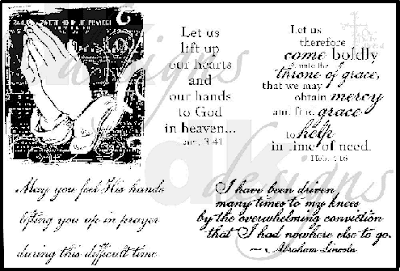 Let us
lift up
our hearts
and
our hands
to God
in heaven...
Lam. 3:41
Let us
therefore
come boldly
unto the
throne of grace,
that we may
obtain mercy
and find grace
to
help
in time of need.
Heb. 4:16
May you feel His hands
lifting you up in prayer
during this difficult time
I have been driven
many times to my knees
by the overwhelming conviction
that I had nowhere else to go.
~ Abraham Lincoln
designs